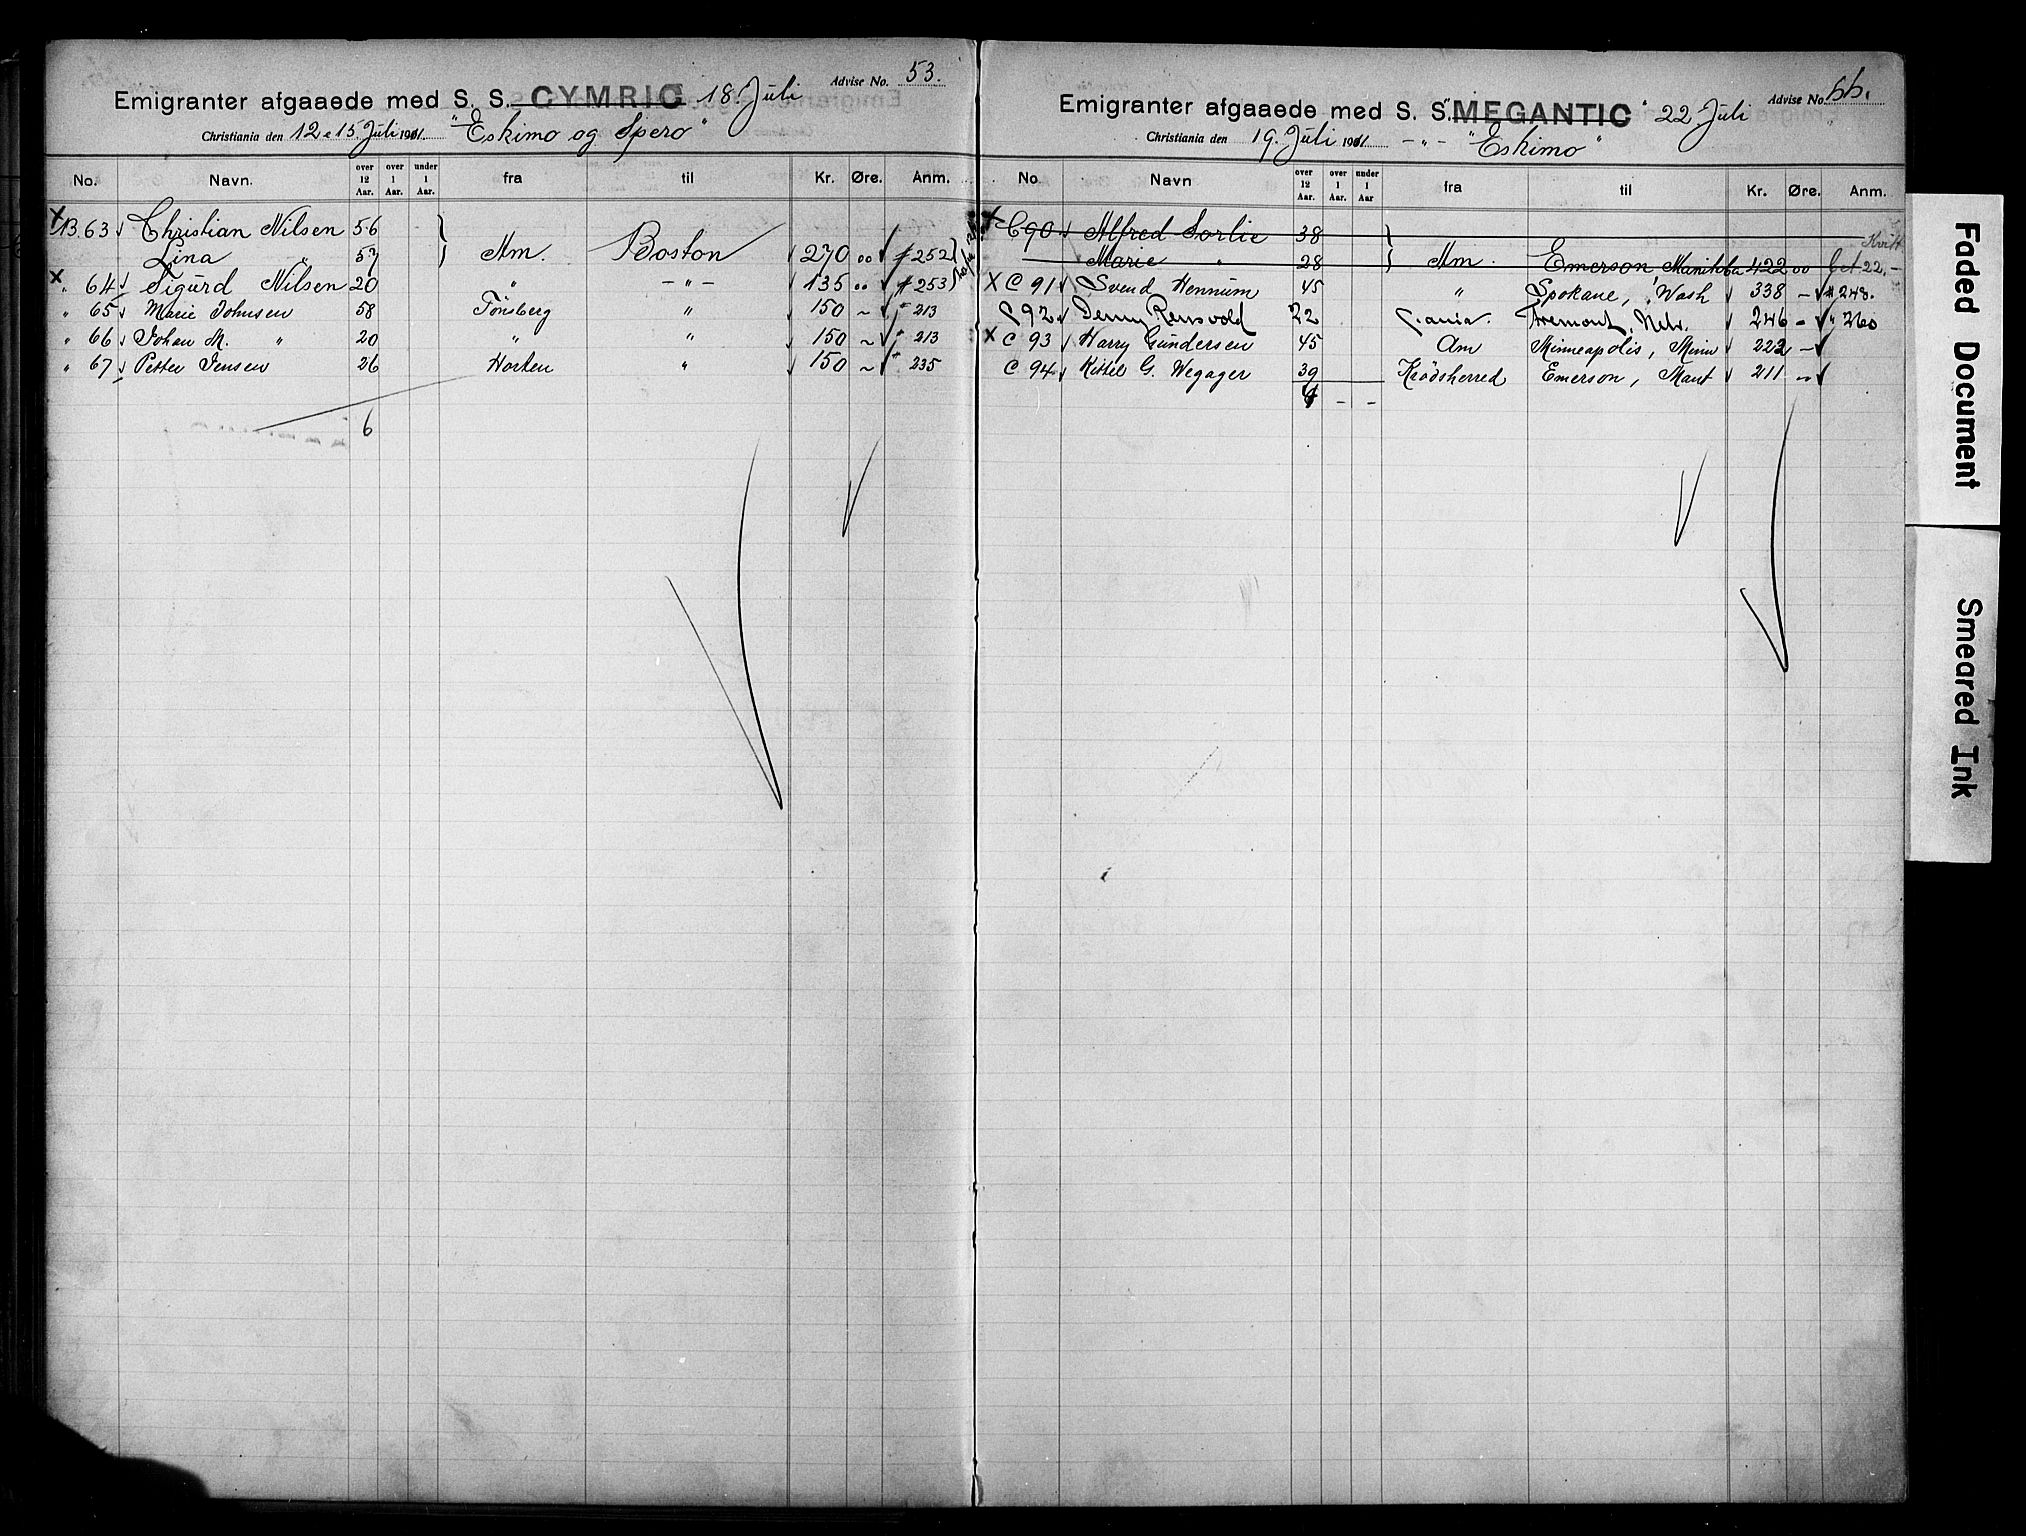 Advise No. 53.
Emigranter afgaaede med S. S. CYMRIC 18. Juli
Christiania den 12 & 15 Juli 1911. "Eskimo og Spero"
No. Navn. over 12 Aar. over 1 Aar. under 1 Aar. fra til Kr. Øre. Anm.
X B 63 Christian Nilsen 56
Lina " 57 Am. Boston 270 00 # 252
X " 64 Sigurd Nilsen 20 " - " - 135 00 # 253
" 65 Marie Johnsen 58 Tönsberg " 150 ~ " 213
" 66 Johan M. " 20 " " 150 ~ " 213
" 67 Petter Jensen 26 Horten " 150 ~ " 235
6
Advise No. 66.
Emigranter afgaaede med S. S. "MEGANTIC" 22 Juli
Christiania den 19. Juli 1911. - " - "Eskimo"
No. Navn over 12 Aar. over 1 Aar. under 1 Aar fra til Kr. Øre. Anm.
X C 90 Alfred Sorlie 38
Marie " 28 Am. Emerson Manitoba 422 00
X C 91 Svend Hennum 45 " Spokane, Wash 338 - # 248.
C 92 Rensvold 22 Fremont, Nebr. 246 - " 260
X C 93 Harry Gundersen 45 Am Minneapolis, Minn 222 -
C 94 Kittel G. Wegager 39 Krödsherred Emerson, Manit 211 -
- -
Faded Document
Smeared Ink